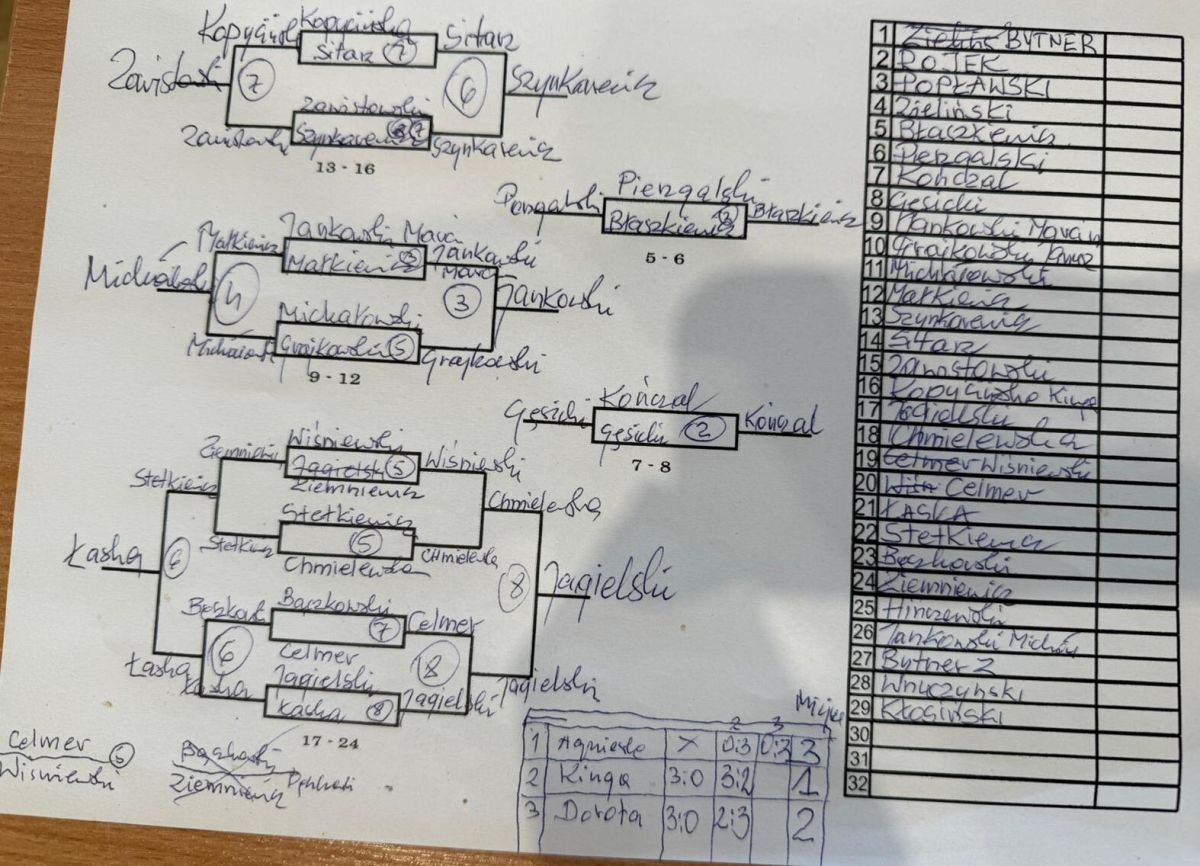 Kopycińsk Kopycińska Sitarz
Sitarz 7
Zawistowski 7 6 Szynkarewicz
Zawistowski
Szynkarewicz 7 Szynkarewicz
13 - 16
Piergalski Błaszkiewicz
Błaszkiewicz 3
5 - 6
Markiewicz Jankowski Mara Jankowski
Markiewicz 3 Mara
Michałowski 4 3 Jankowski
Michałowski
Grajkowski 5 Grajkowski
9 - 12
Gęsicki Kończal Kończal
Gęsicki 2
7 - 8
Wiśniewski Wiśniewski
Jagielsk 5
Ziemniewicz
Stetkiewicz Chmielewska
Stetkiewicz
5 Chmielewska
Chmielewska
Łaska 6 8 Jagielski
Bączkowski Celmer
7
Celmer
6 18
Łaska Jagielski
Łaska 8 Jagielski Jagielski
17 - 24
Celmer 5
Wiśniewski
Bączkowski
Ziemniewicz
2 3
1 Agnieszka x 0:3 0:3 3
2 Kinga 3:0 3:2 1
3 Dorota 3:0 2:3 2
1 Zielińs BYTNER
2 DOJEK
3 POPŁAWSKI
4 Zieliński
5 Błaszkiewicz
6 Piergalski
7 Kończal
8 Gęsicki
9 Jankowski Maran
10 Grajkowski Janusz
11 Michałowski
12 Markiewicz
13 Szynkarewicz
14 Sitarz
15 Zawistowski
16 Kopycińska Kinga
17 Jagielski
18 Chmielewska
19 Celmer Wiśniewski
20 Wiśn Celmer
21 ŁASKA
22 Stetkiewicz
23 Bączkowski
24 Ziemniewicz
25 Hinczewski
26 Jankowski Michał
27 Bytner 2
28 Wnuczyński
29 Kłosiński
30
31
32